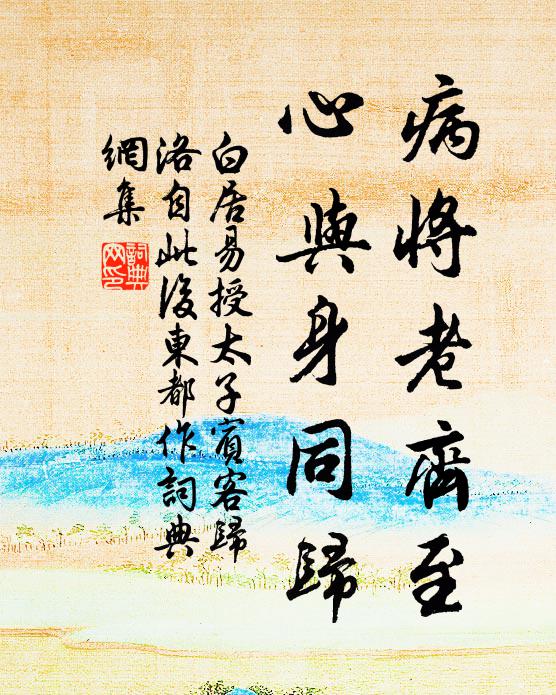 病將老齊至
心與身同歸
白居易授太子賓客歸
洛自此後東都作詞典
網集
詞典網印